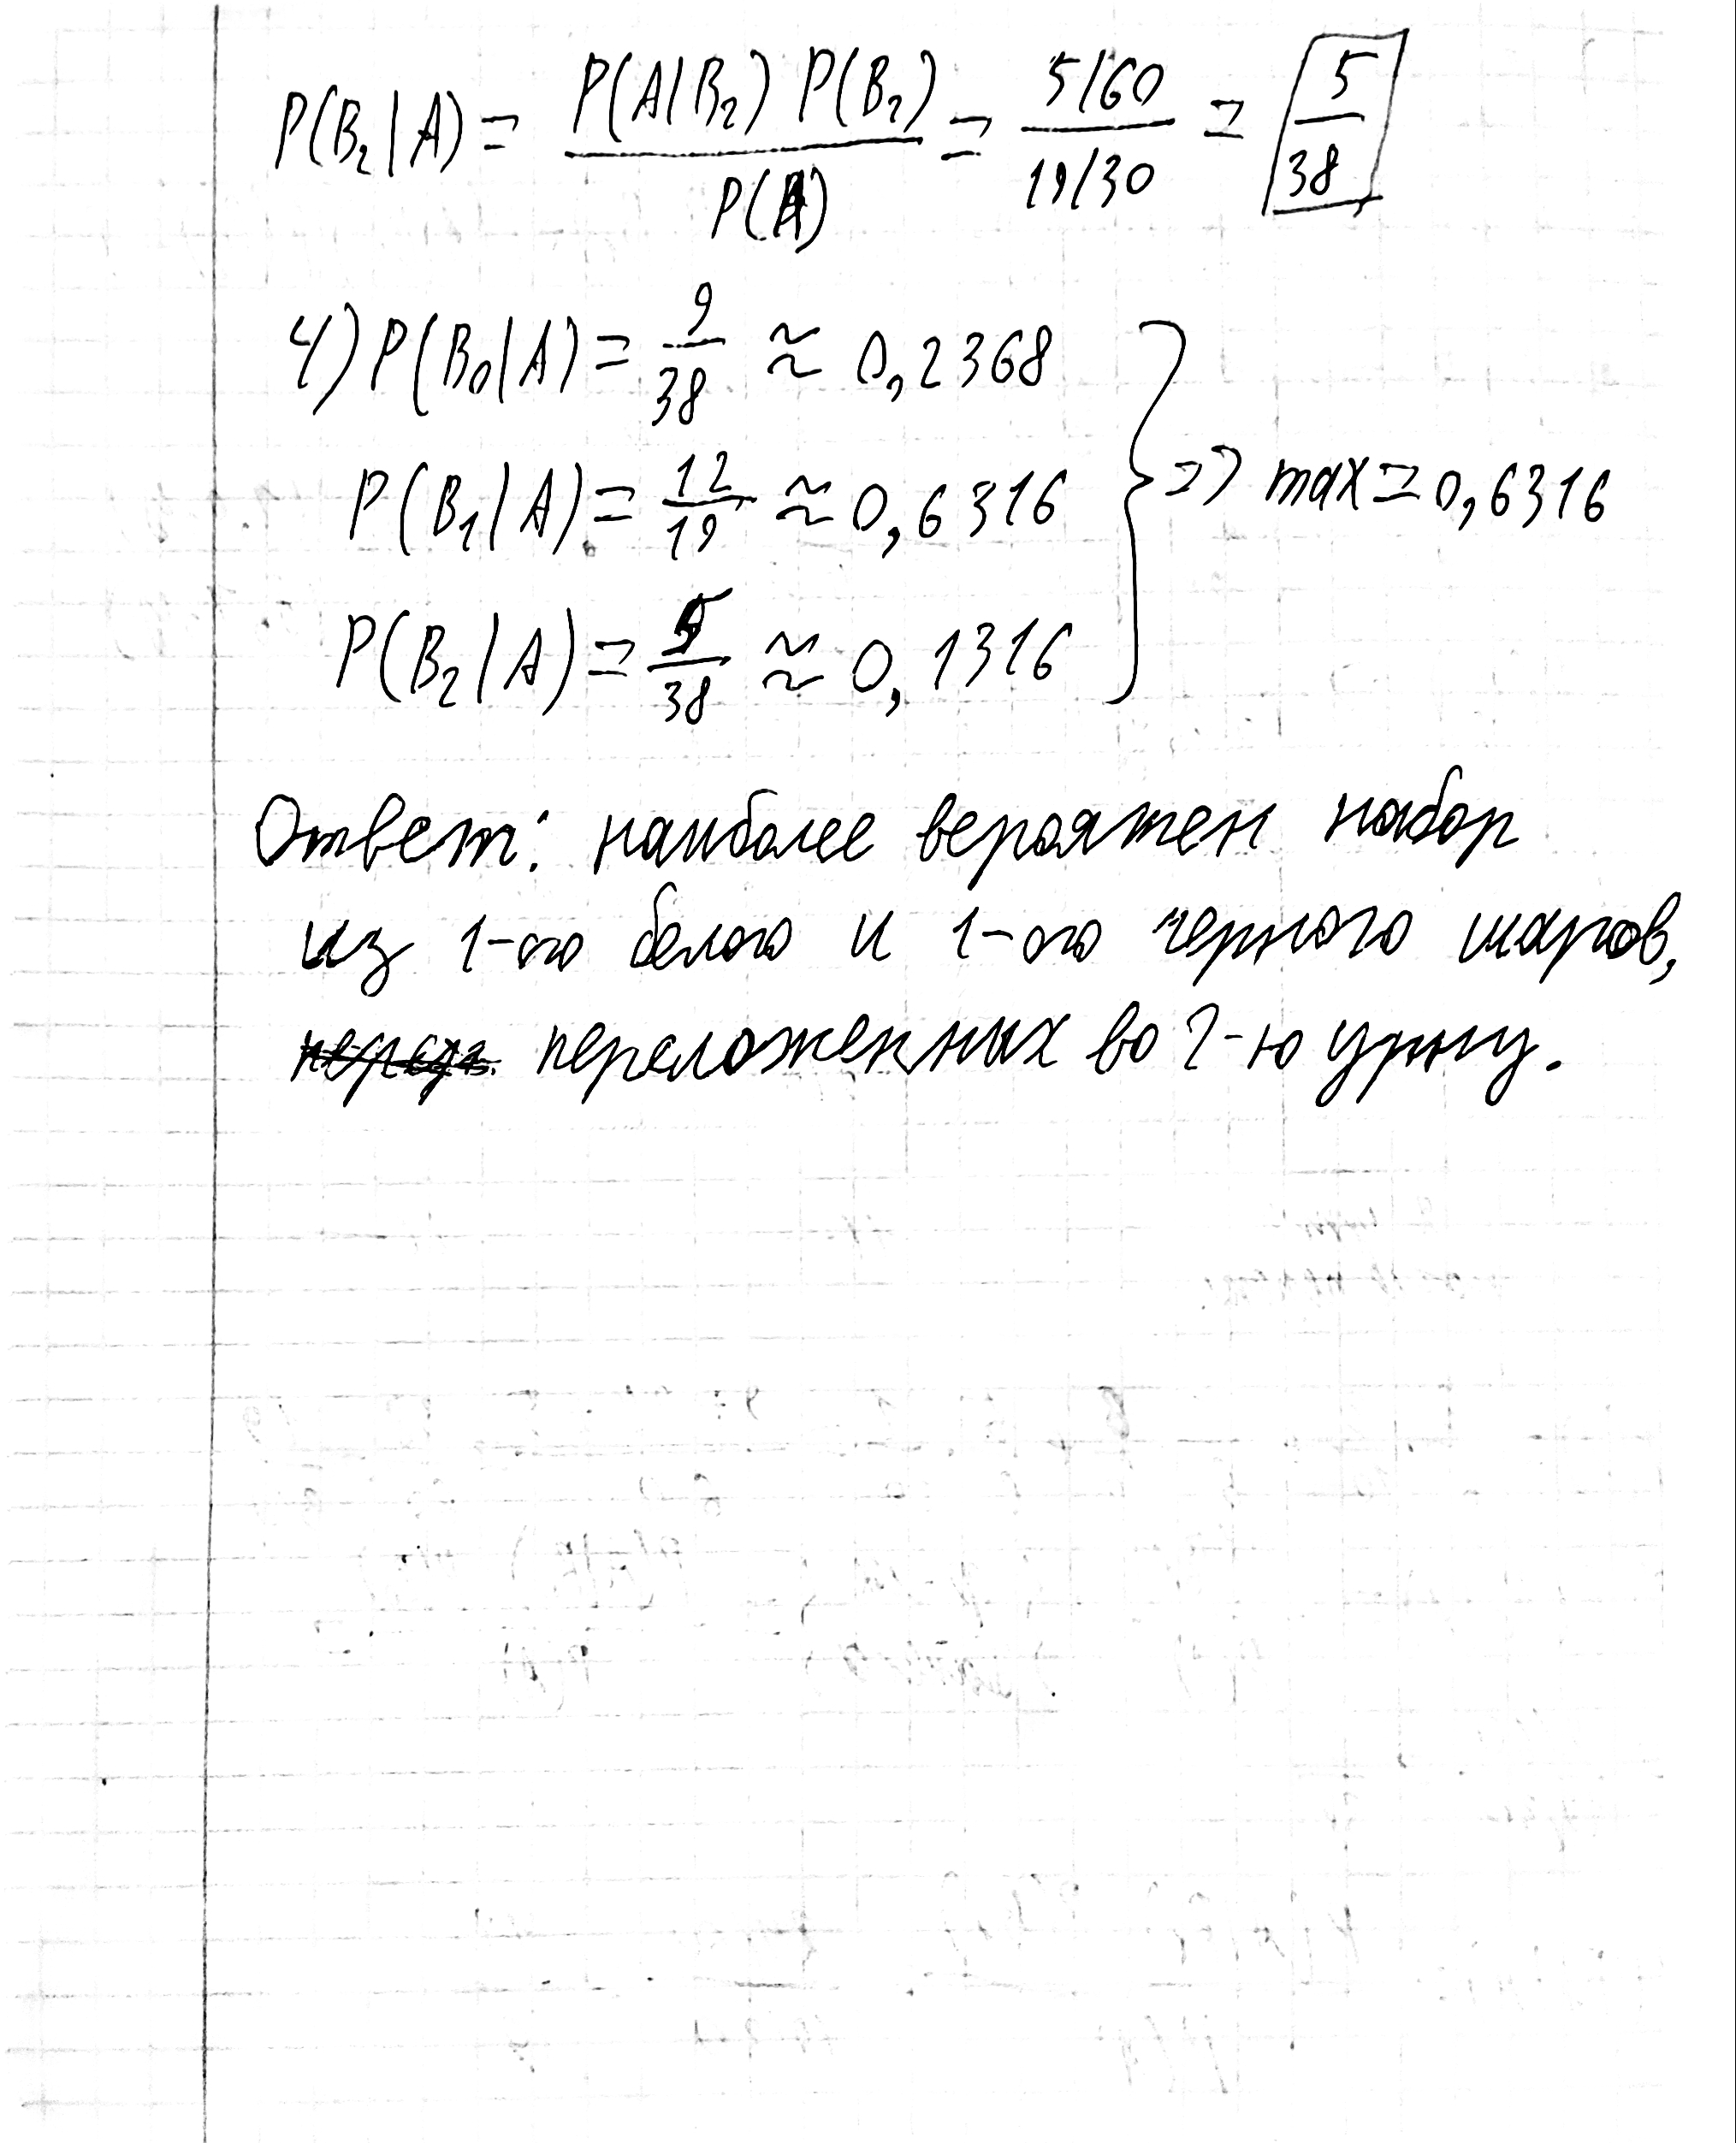 P(B₂|A) = P(A|B₂) P(B₂) / P(A) = 5/60 / 19/30 = 5/38
4) P(B₀|A) = 9/38 ≈ 0,2368
P(B₁|A) = 12/19 ≈ 0,6316 } => max = 0,6316
P(B₂|A) = 5/38 ≈ 0,1316
Ответ: наиболее вероятен набор
из 1-ого белого и 1-ого черного шаров,
переложенных во 2-ю урну.